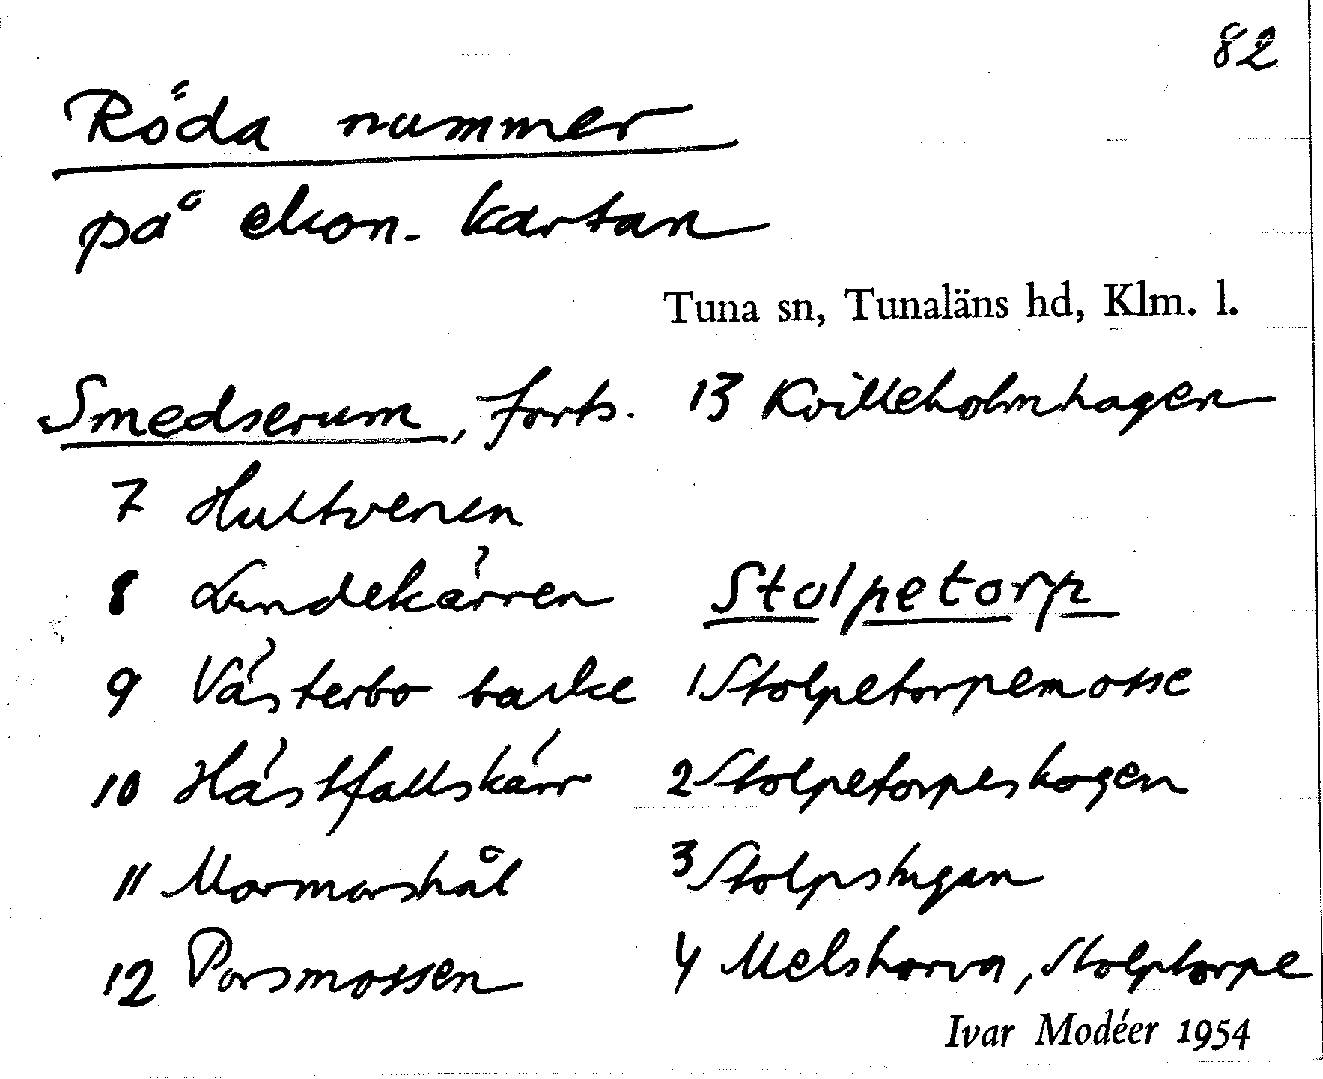 82
Röda nummer
på ekon. kartan
Tuna sn, Tunaläns hd, Klm. l.
Smedserum, forts.
7 Hultvenen
8 Lundekärren
9 Västerbo backe
10 Hästfallskärr
11 Mormorshål
12 Porsmossen
13 Kvilleholmhagen
Stolpetorp
1 Stolpetorpemosse
2 Stolpetorpeskogen
3 Stolpstugan
4 Melshorva, Stolptorpe
Ivar Modéer 1954